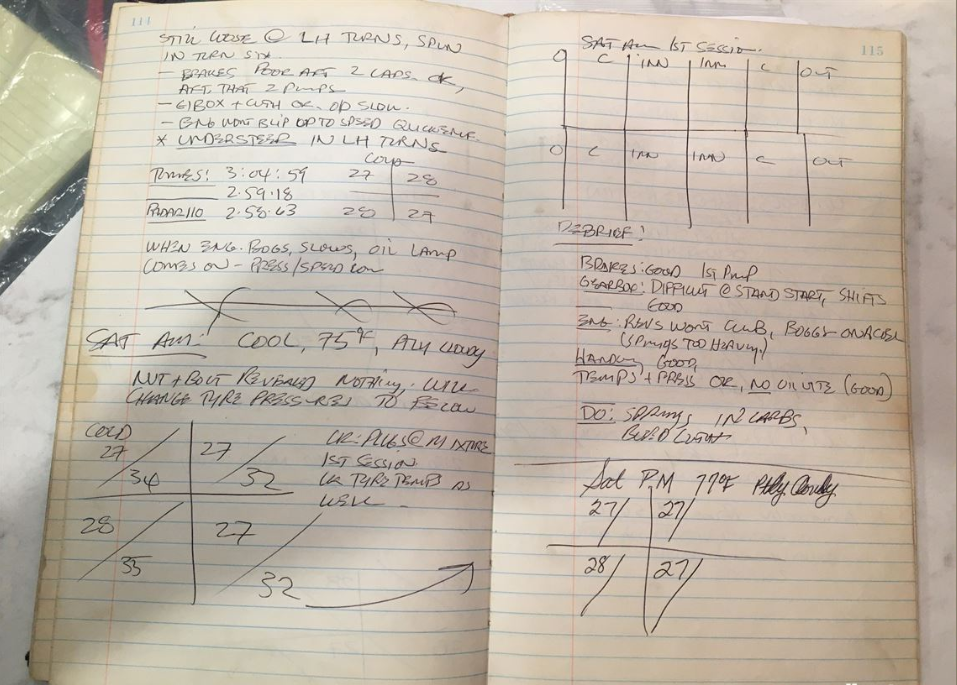 114
STILL LOOSE @ LH TURNS, SPUN
IN TURN SIX
- BRAKES POOR AFT 2 LAPS OK,
AFT THAT 2 PUMPS
- G/BOX + CLTH OK. OD SLOW.
- ENG WON'T BLIP UP TO SPEED QUICK ENUF.
* UNDERSTEER IN LH TURNS
COLD
TIMES! 3:04:59 27 28
2:59.18
2:58.63 28 27
WHEN ENG. BOGS, SLOWS, OIL LAMP
COMES ON - PRESS/SPEED LOW
SAT AM! COOL, 75°F, PTLY CLOUDY
NUT + BOLT REVEALED NOTHING. WILL
CHANGE TYRE PRESSURES TO BELOW
COLD
27 34 27 32
CK: PLUGS @ MIXTURE
1ST SESSION
CK TYRE TEMPS AS
WELL
28 35 27 32
115
SAT AM 1ST SESSION.
O C INN INN C OUT
O C INN INN C OUT
DEBRIEF!
BRAKES: GOOD 1ST PMP
GEARBOX: DIFFICULT @ STAND START, SHIFTS
GOOD
ENG: REVS WONT CLIMB, BOGGS ON ACCEL
(SPRINGS TOO HEAVY)
HANDLING GOOD,
TEMPS + PRESS OK, NO OIL LITE (GOOD)
DO: SPRINGS IN CARBS,
BLEED CLUTCH
Sat P.M 77°F Ptly Cloudy.
27/ 27/
28/ 27/